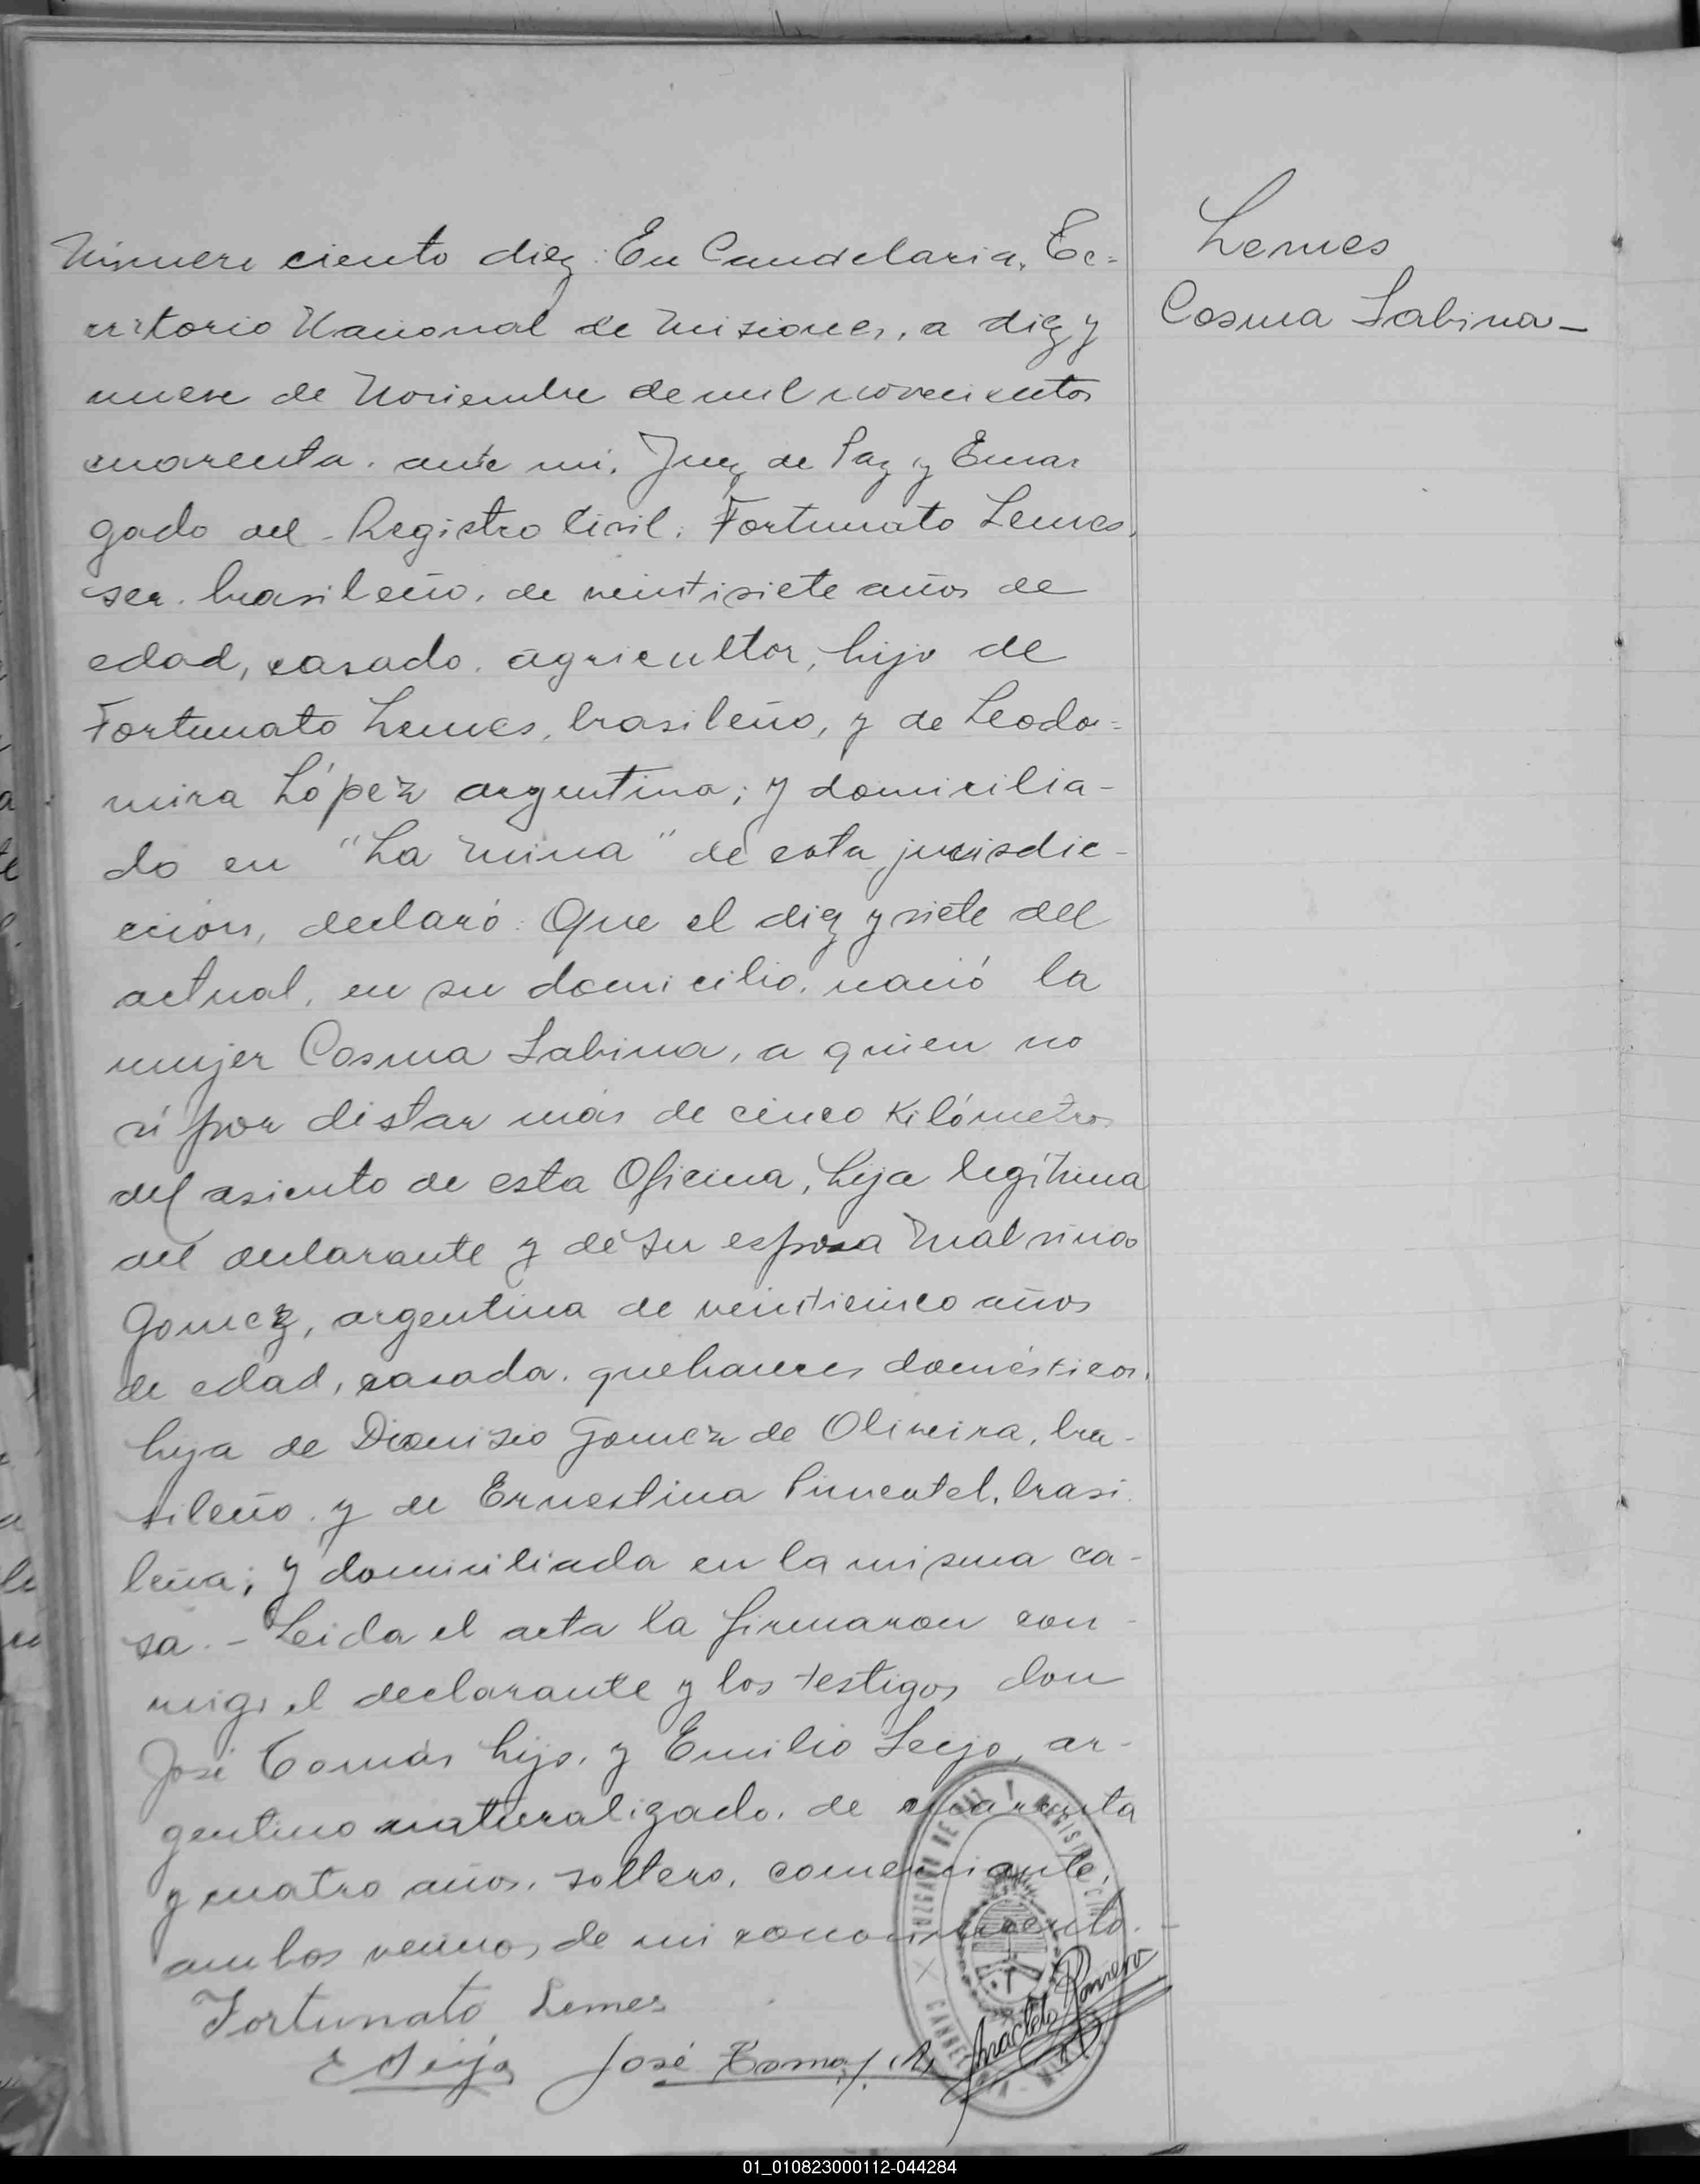 Lemes
Cosma Sabina -
Número ciento diez: En Candelaria, Te=
rritorio Nacional de Misiones, a diez y
nueve de Noviembre de mil novecientos
cuarenta. ante mi, Juez de Paz y Encar
gado del Registro Civil: Fortunato Lemes,
ser brasileño, de veintisiete años de
edad, casado, agricultor, hijo de
Fortunato Lemes, brasileño, y de Leodo=
mira López argentina; y domicilia-
do en "La Mina" de esta jurisdic-
cción, declaró: Que el diez y siete del
actual, en su domicilio, nació la
mujer Cosma Sabina, a quien no
ví por distar más de cinco Kilómetros
del asiento de esta Oficina, hija legítima
del declarante y de su esposa Malvina
Gomez, argentina de veinticinco años
de edad, casada, quehaceres domésticos,
hija de Dionisio Gomez de Oliveira, bra-
sileño y de Ernestina Pimentel, brasi
leña; y domiciliada en la misma ca-
sa. - Leida el acta la firmaron con-
migo el declarante y los testigos don
José Tomás hijo, y Emilio Seijo, ar-
gentino naturalizado, de cuarenta
y cuatro años, soltero, comerciante,
ambos vecinos de mi conocimiento. -
Fortunato Lemes
E Seijo José Tomas (h)
Anacleto Romero
JUZGADO DE PAZ Y REGISTRO CIVIL
01_010823000112-044284